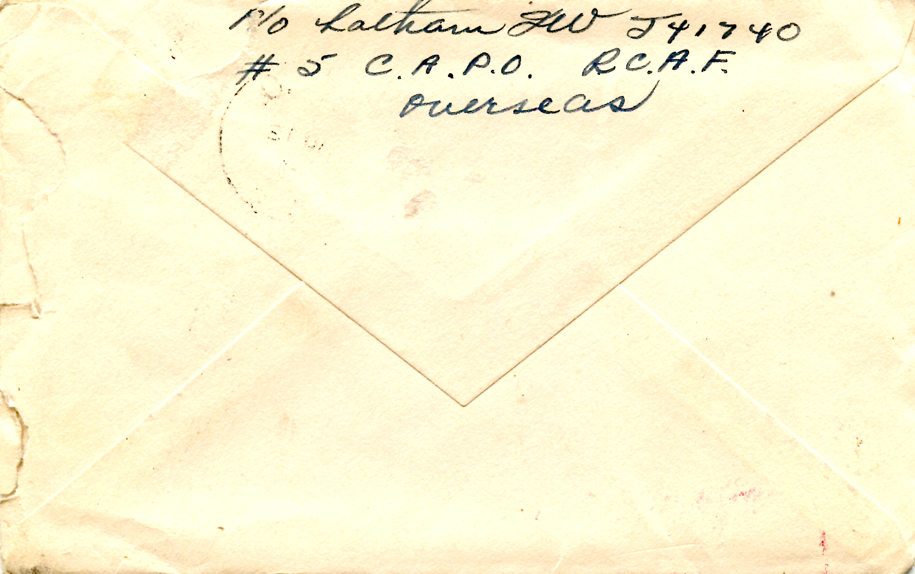 P/O Latham FW J41740
# 5 C.A.P.O. R.C.A.F.
Overseas